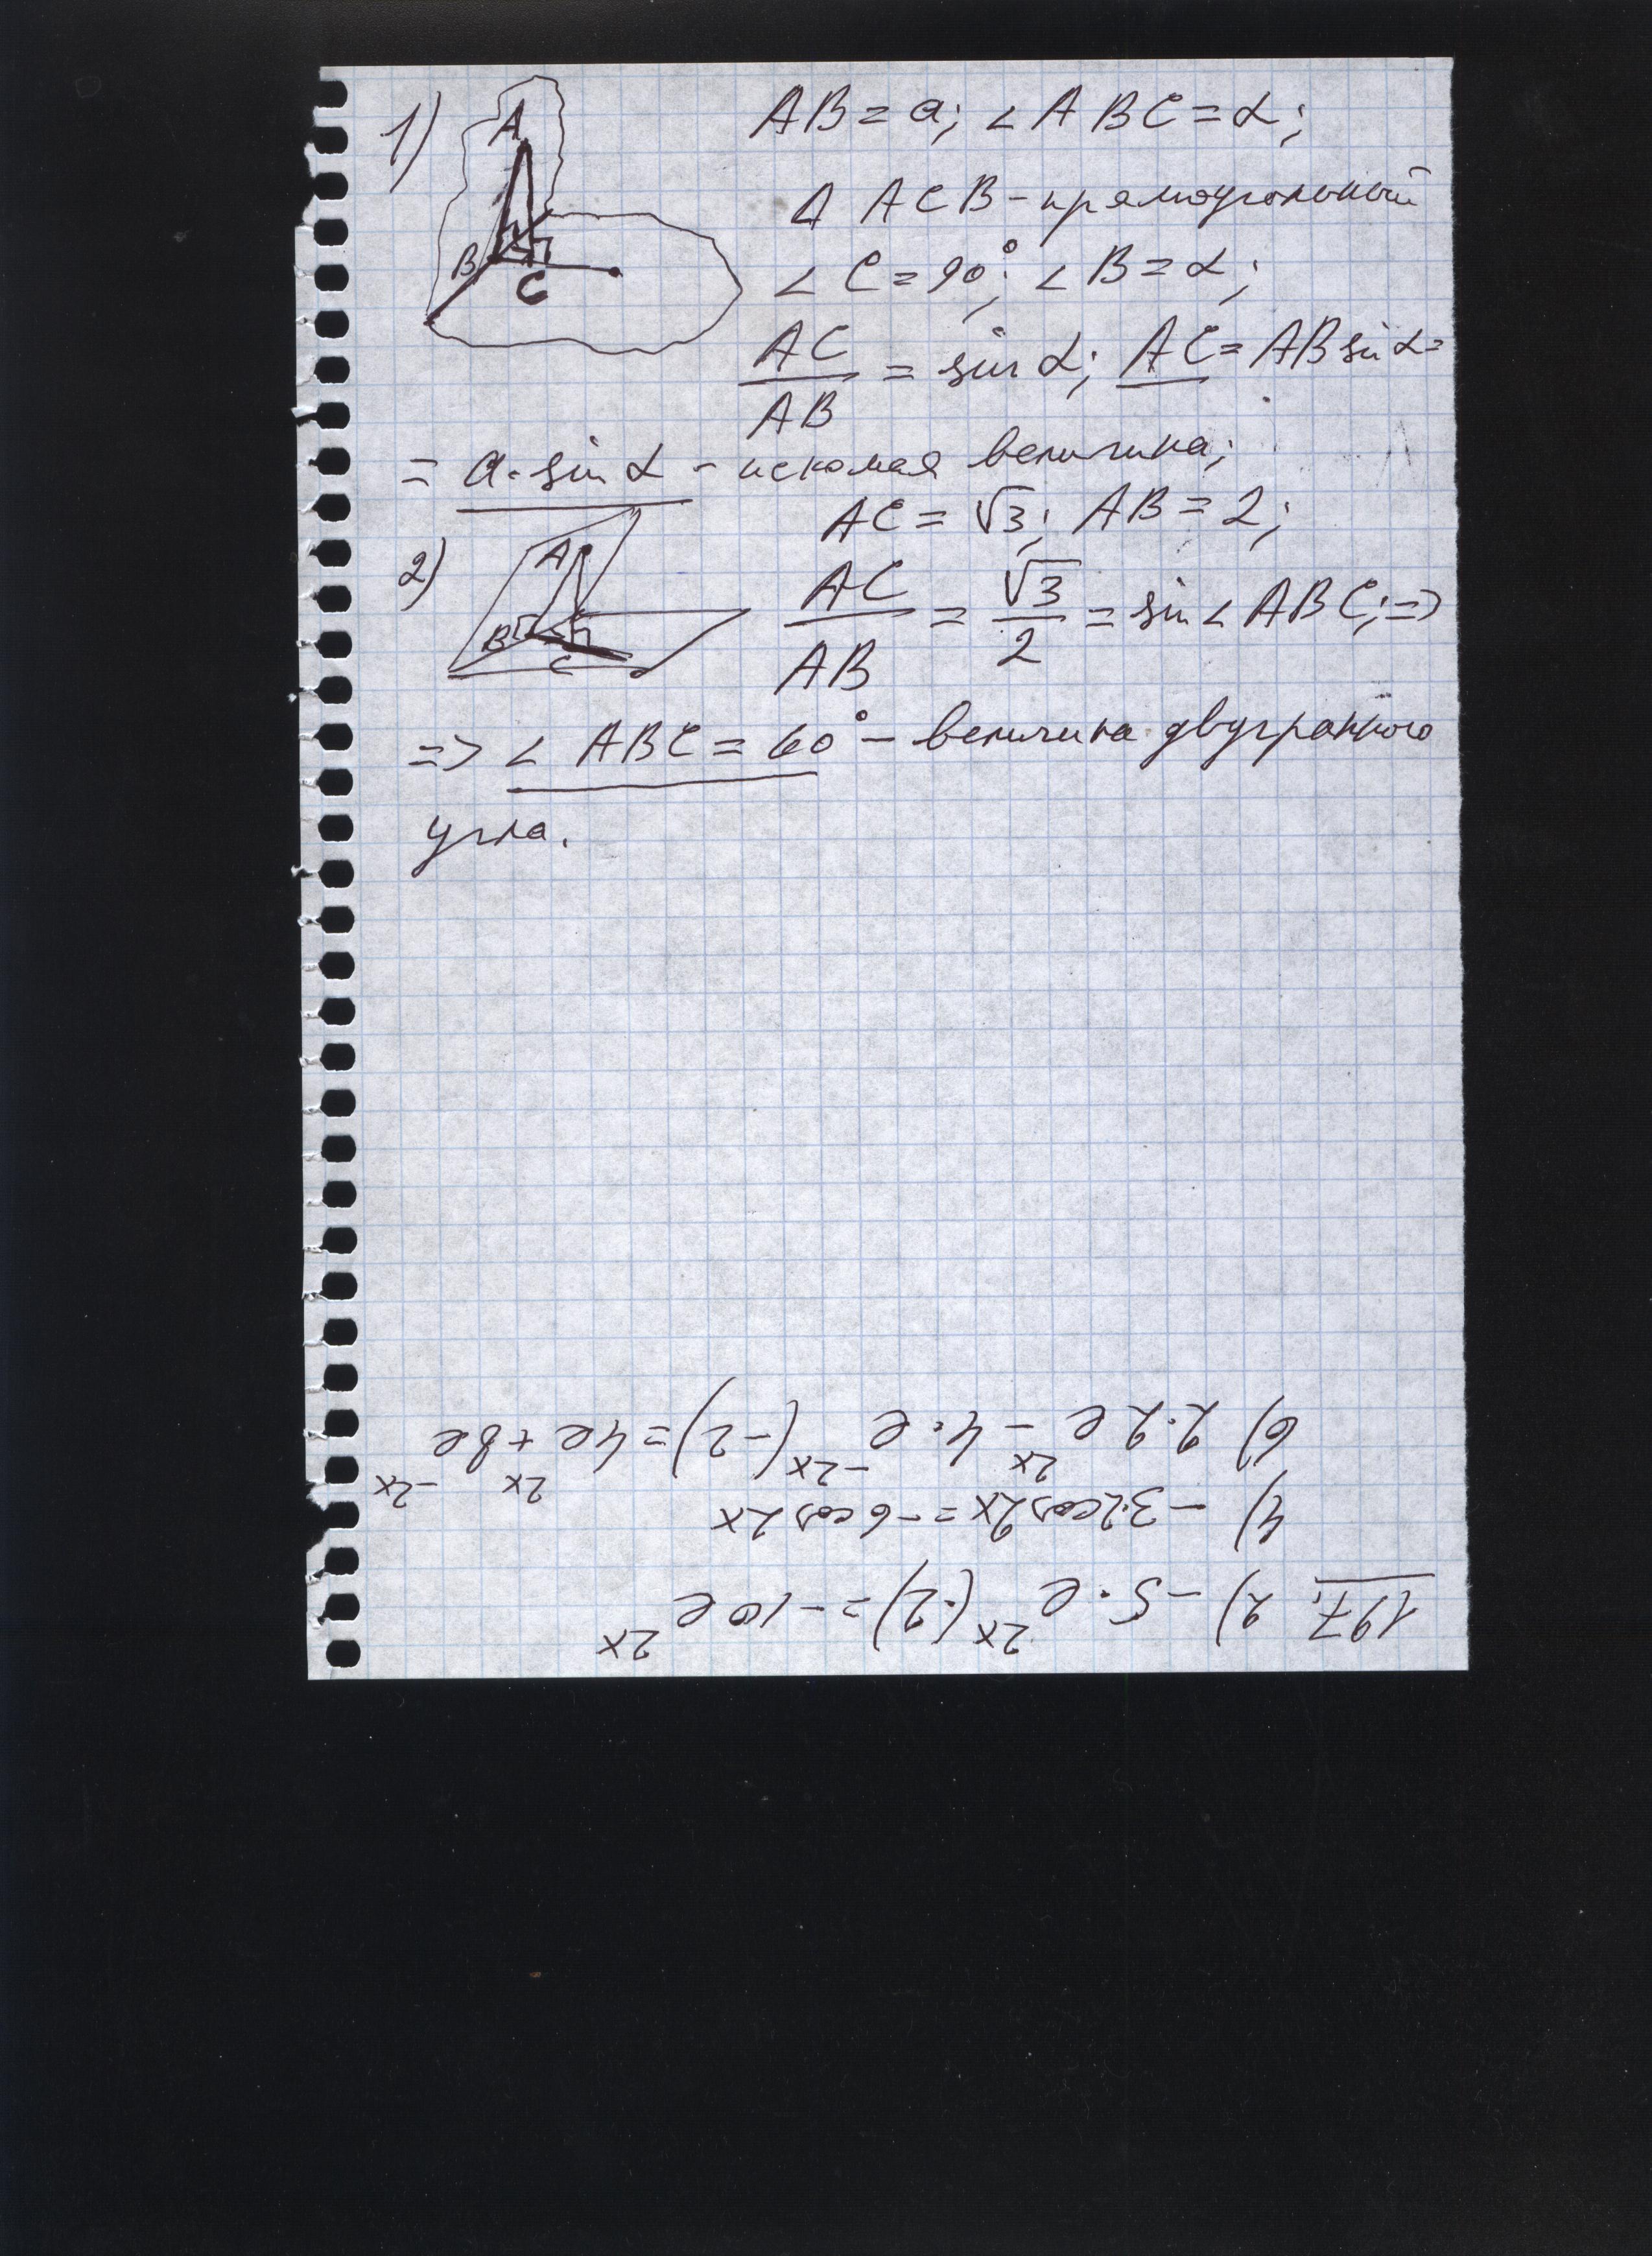 1) AB = a; ∠ABC = α;
A
B
C
Δ ACB - прямоугольный
∠C = 90°; ∠B = α;
AC/AB = sin α; AC = AB sin α =
= a·sin α - искомая величина;
2) AC = √3; AB = 2;
A
B
C
AC/AB = √3/2 = sin ∠ABC; =>
=> ∠ABC = 60° - величина двугранного
угла.
197. 2) -5·e^2x (-2) = -10e^2x
4) -3·2cos2x = -6cos2x
6) 2·2e^2x - 4·e^-2x (-2) = 4e^2x + 8e^-2x